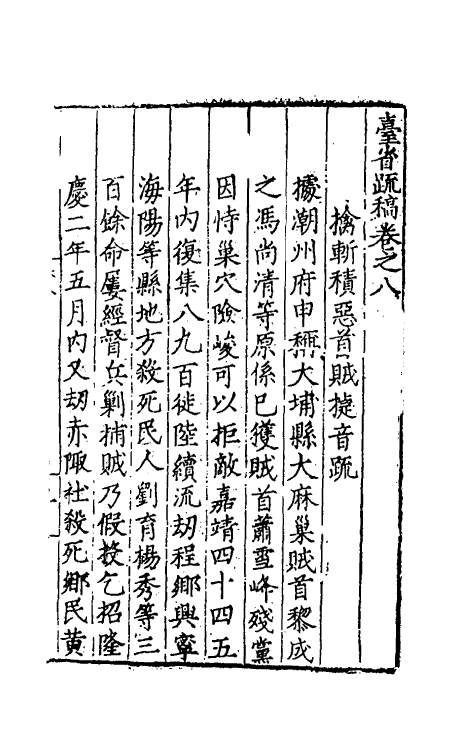 臺省疏稿卷之八
擒斬積惡首賊捷音疏
據潮州府申稱大埔縣大麻巢賊首黎成
之馮尚清等原係已獲賊首蕭雪峰殘黨
因恃巢穴險峻可以拒敵嘉靖四十四五
年內復集八九百徒陸續流刼程鄉興寧
海陽等縣地方殺死民人劉育楊秀等三
百餘命屢經督兵剿捕賊乃假投乞招隆
慶二年五月內又刼赤陬社殺死鄉民黃